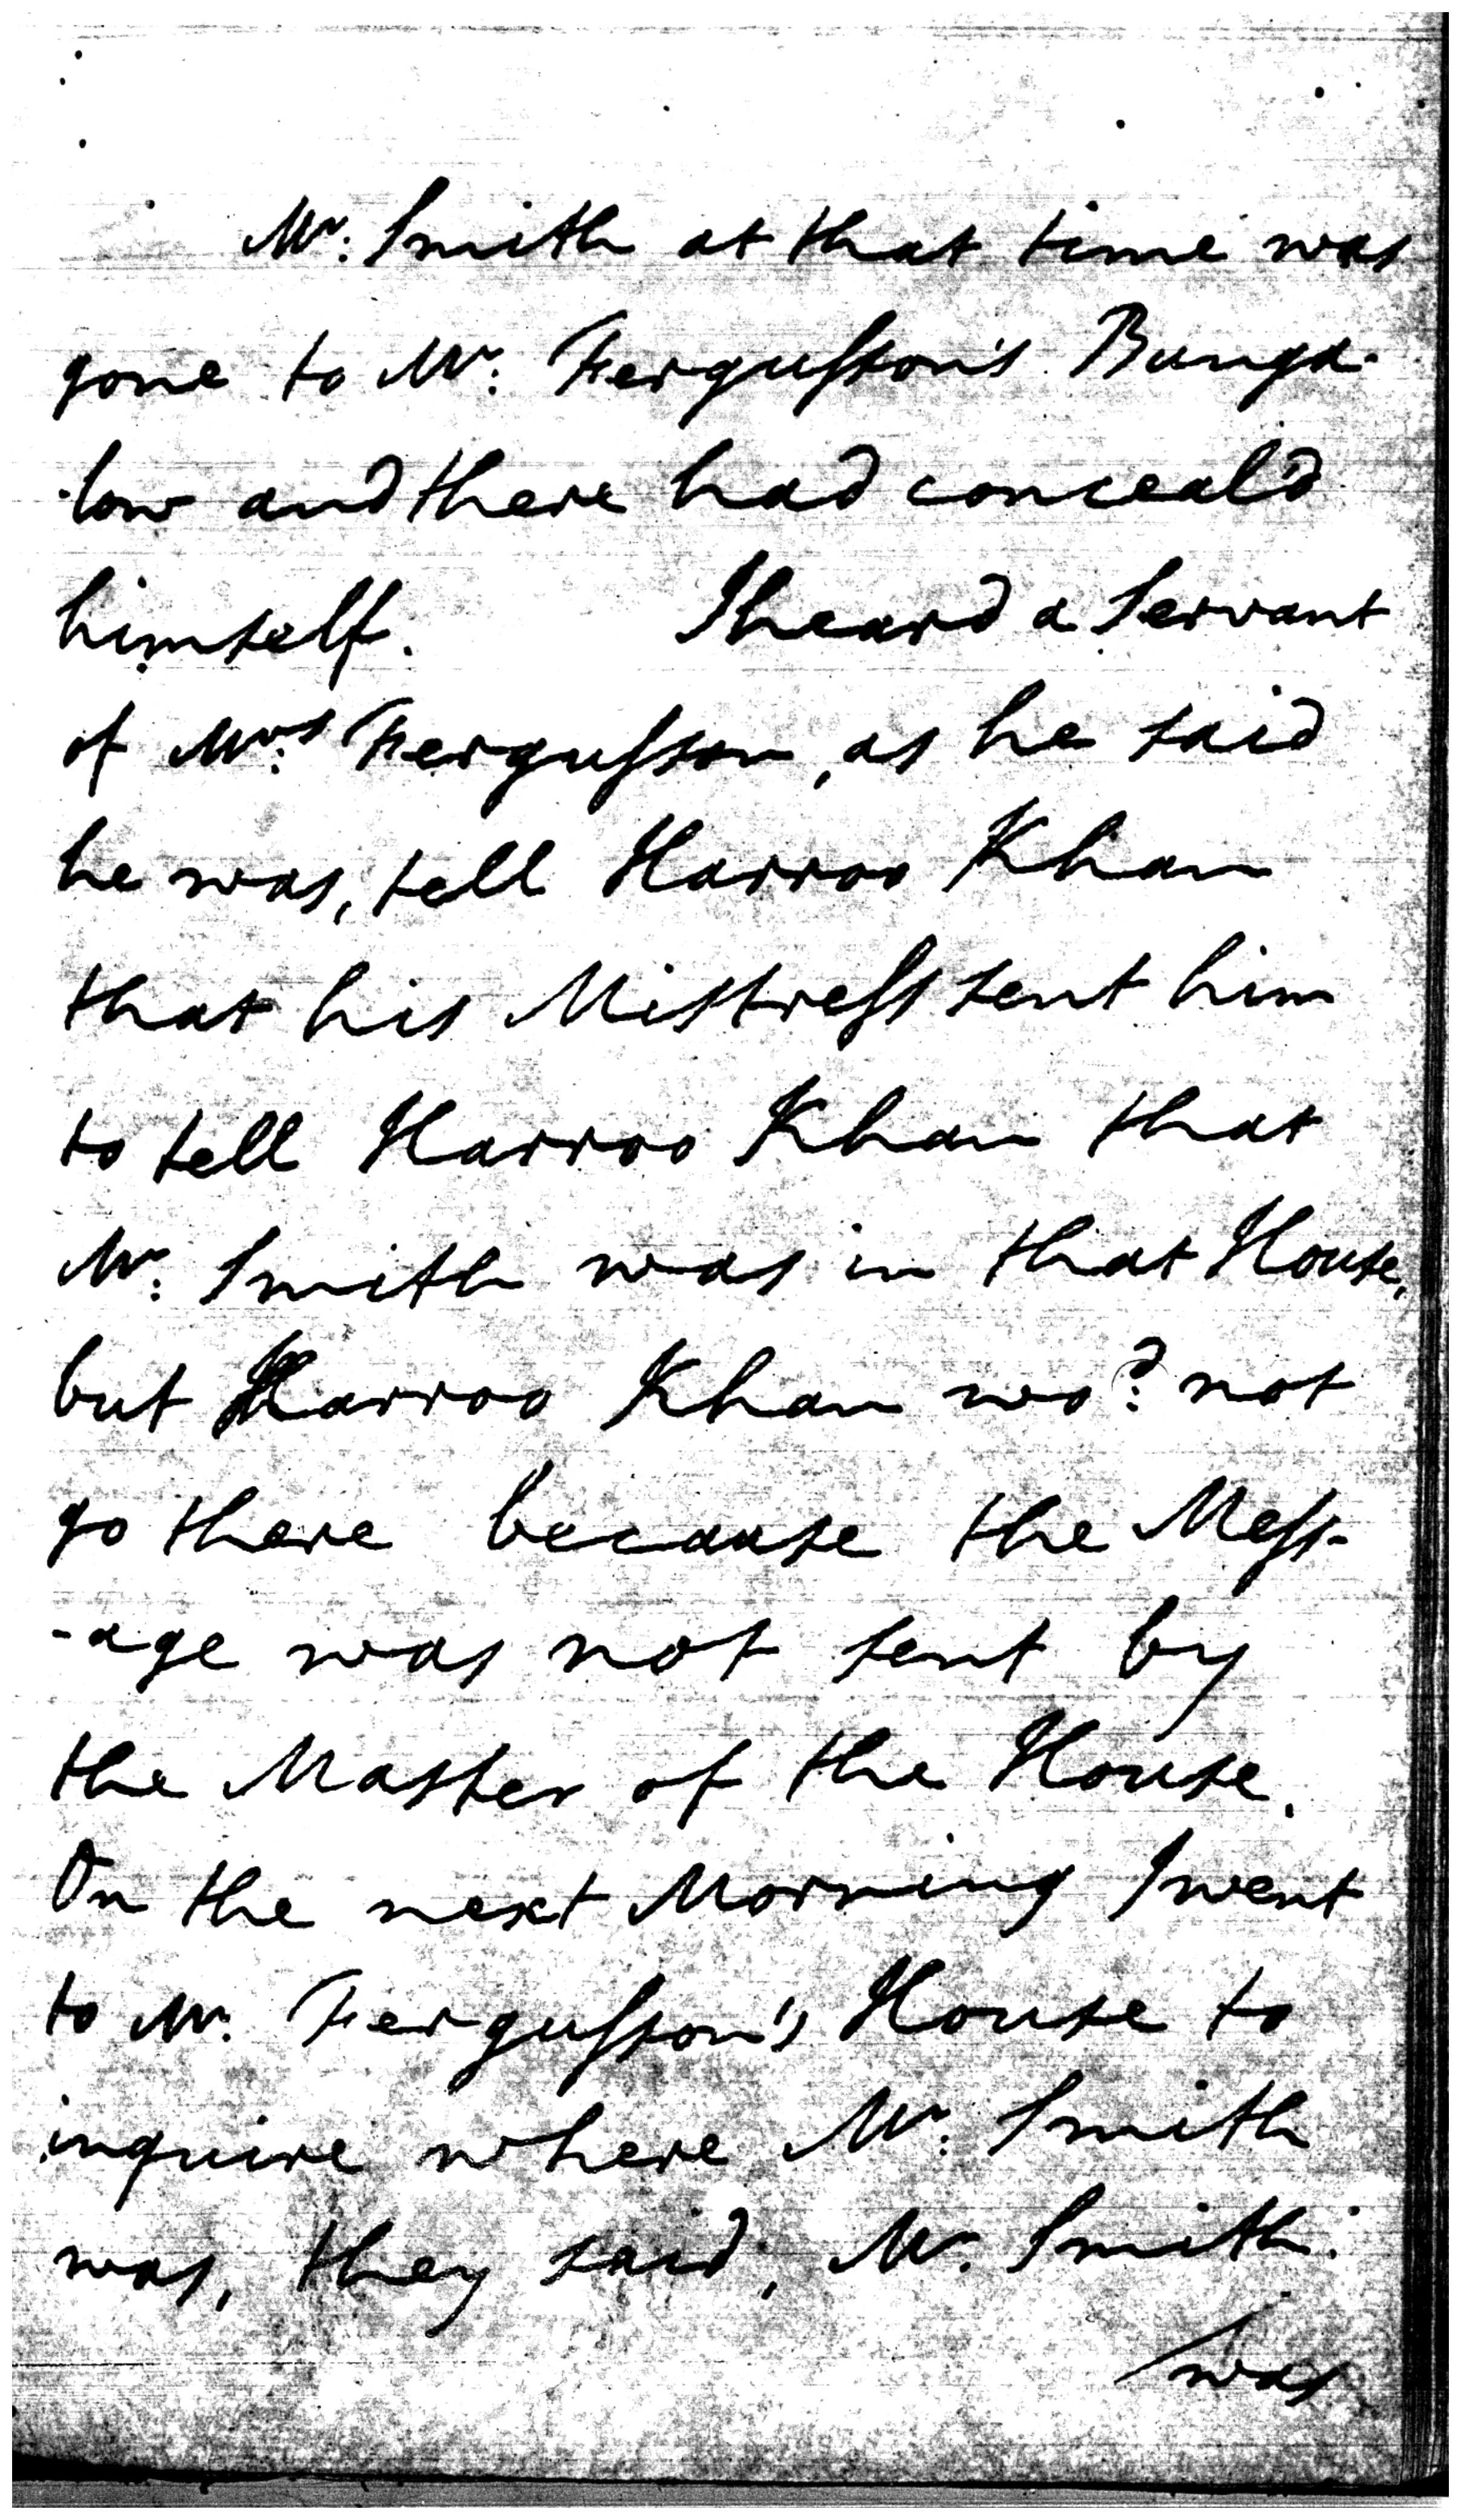 Mr. Smith at that time was
gone to Mr. Fergusson's Bunga-
-low and there had conceal'd
himself. I heard a Servant
of Mrs. Fergusson, as he said
he was, tell Harroo Khan
that his Mistress sent him
to tell Harroo Khan that
Mr. Smith was in that House,
but Harroo Khan wod. not
go there because the Mess-
-age was not sent by
the Master of the House.
On the next Morning I went
to Mr. Fergusson's House to
inquire where Mr. Smith
was, they said, Mr. Smith
was